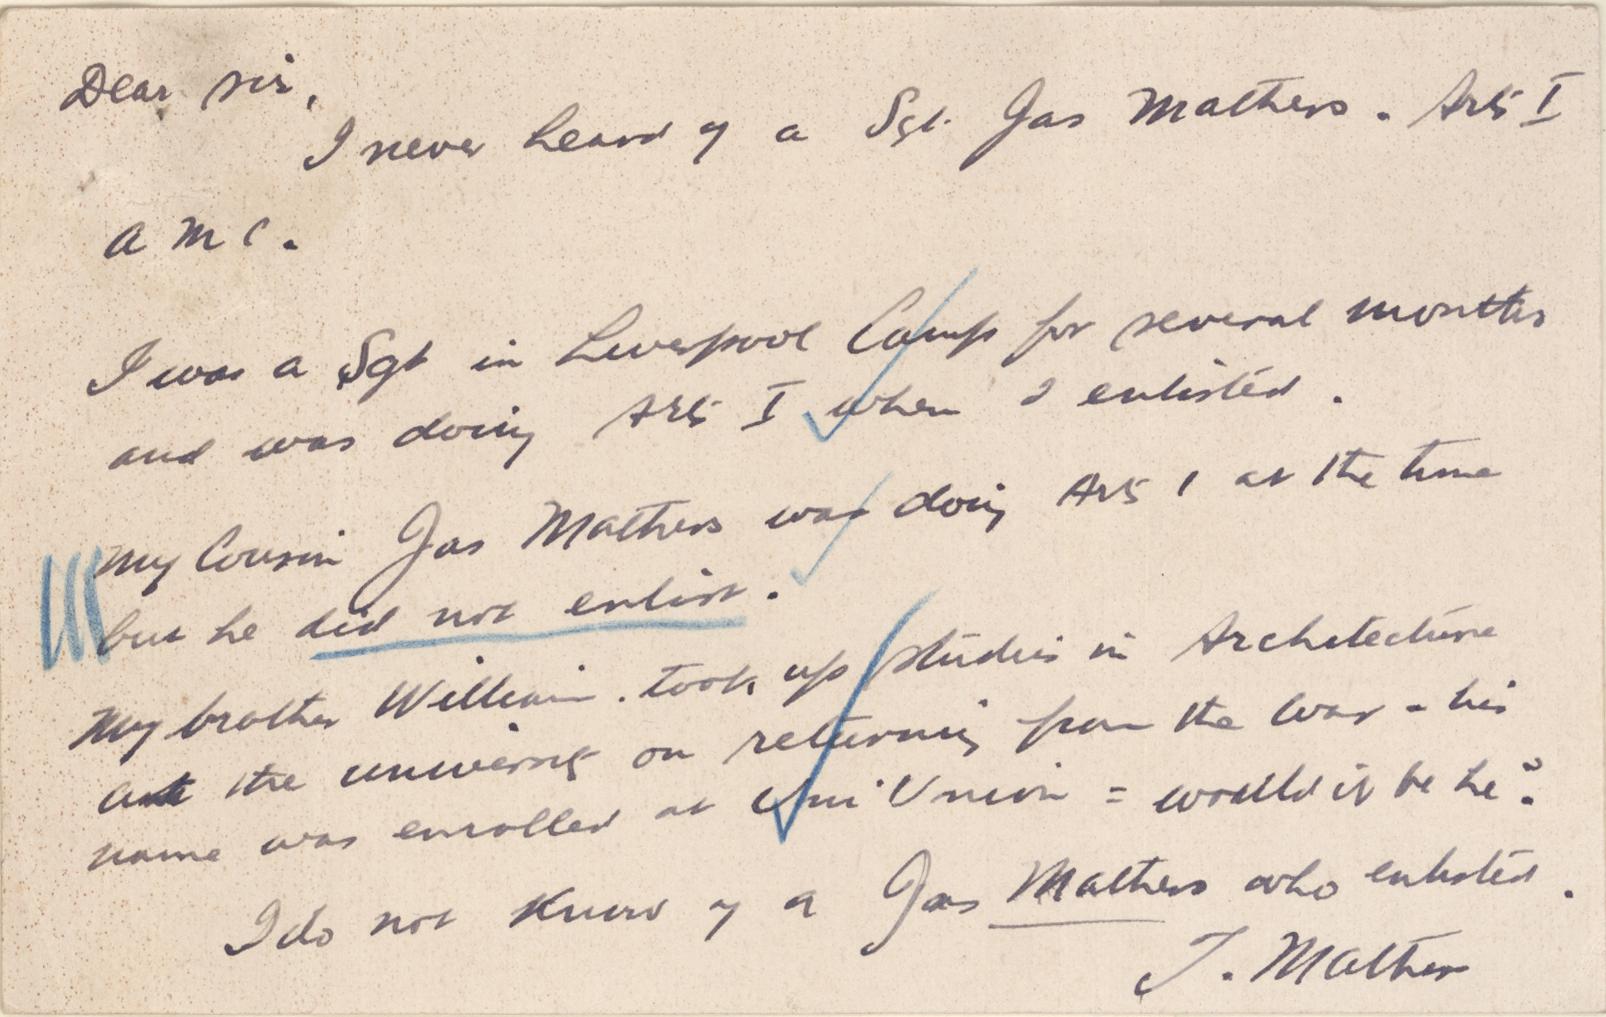 Dear sir,
I never heard of a Sgt. Jas Mathers. Arts I
A M C.
I was a Sgt in Liverpool Camp for several months
and was doing Arts I when I enlisted.
My Cousin Jas Mathers was doing Arts 1 at the time
but he did not enlist.
My brother William. took up studies in Architecture
at the university on returning from the War - his
name was enrolled at Uni Union = would it be he?
I do not know of a Jas Mathers who enlisted.
J. Mathers